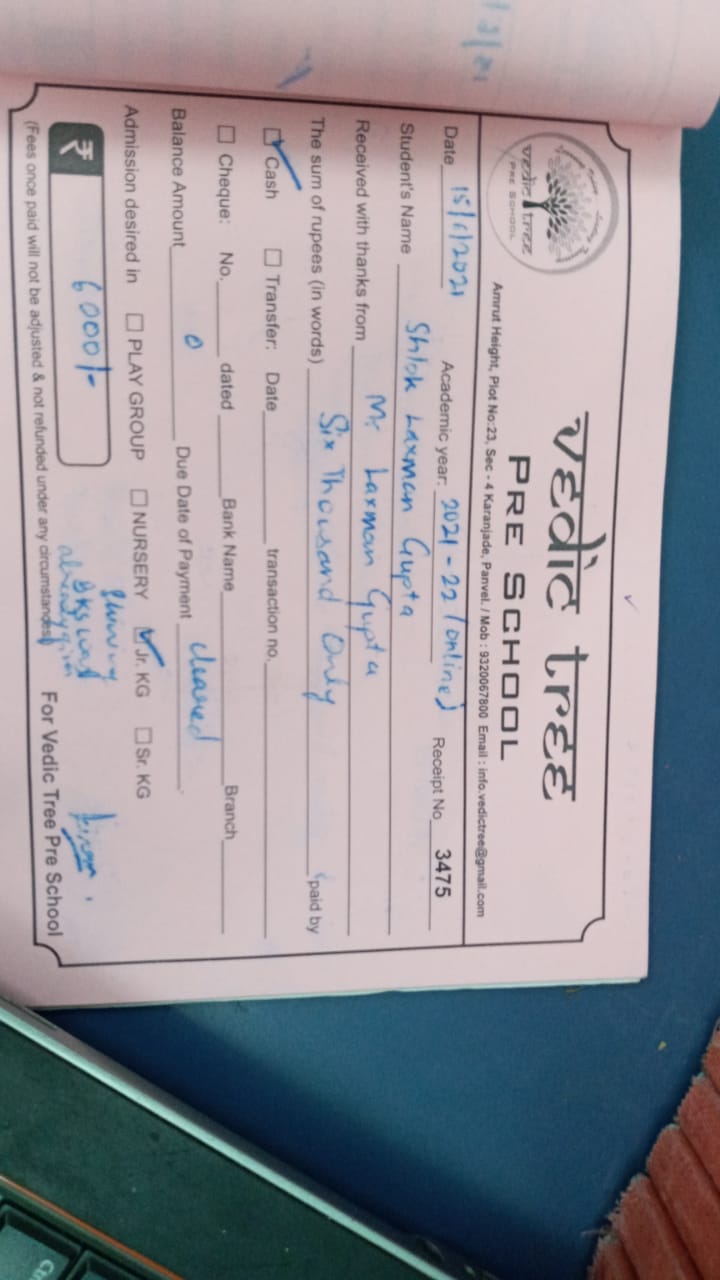 vedic tree
PRE SCHOOL
vedic tree
PRE SCHOOL
Amrut Height, Plot No:23, Sec - 4 Karanjade, Panvel. / Mob : 9320067800 Email : info.vedictree@gmail.com
Date 15/6/2021 Academic year: 2021-22 (online) Receipt No 3475
Student's Name Shlok Laxman Gupta
Received with thanks from Mr Laxman Gupta
The sum of rupees (in words) Six Thousand Only paid by
Cash Transfer: Date transaction no.
Cheque: No. dated Bank Name Branch
Balance Amount 0 Due Date of Payment cleared
Admission desired in PLAY GROUP NURSERY Jr. KG Sr. KG
₹ 6000/-
already given
For Vedic Tree Pre School
(Fees once paid will not be adjusted & not refunded under any circumstances)